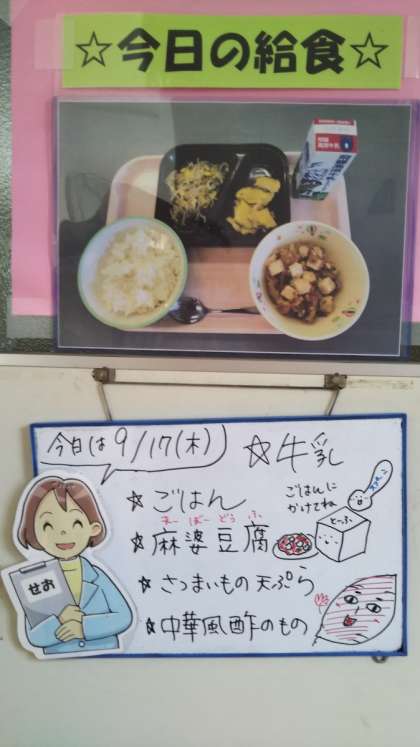 ☆今日の給食☆
今日は9/17(木)
☆牛乳
☆ごはん
ごはんに
かけてね
まーぼーどうふ
☆麻婆豆腐
とうふ
☆さつまいもの天ぷら
☆中華風酢のもの
せお